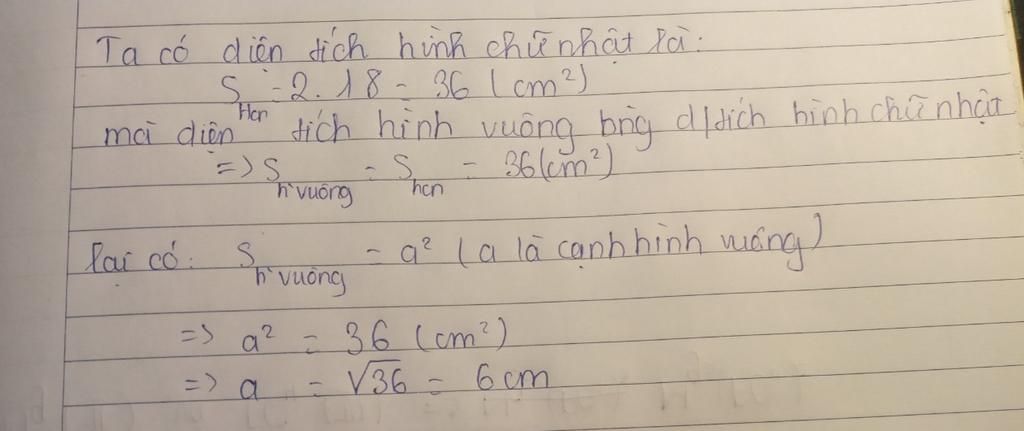 Ta có diện tích hình chữ nhật là:
S Hcn = 2.18 = 36 (cm²)
mà diện tích hình vuông bằng d/tích hình chữ nhật
=> S h vuông = S hcn = 36(cm²)
lại có: S h vuông = a² (a là cạnh hình vuông)
=> a² = 36 (cm²)
=> a = √36 = 6cm